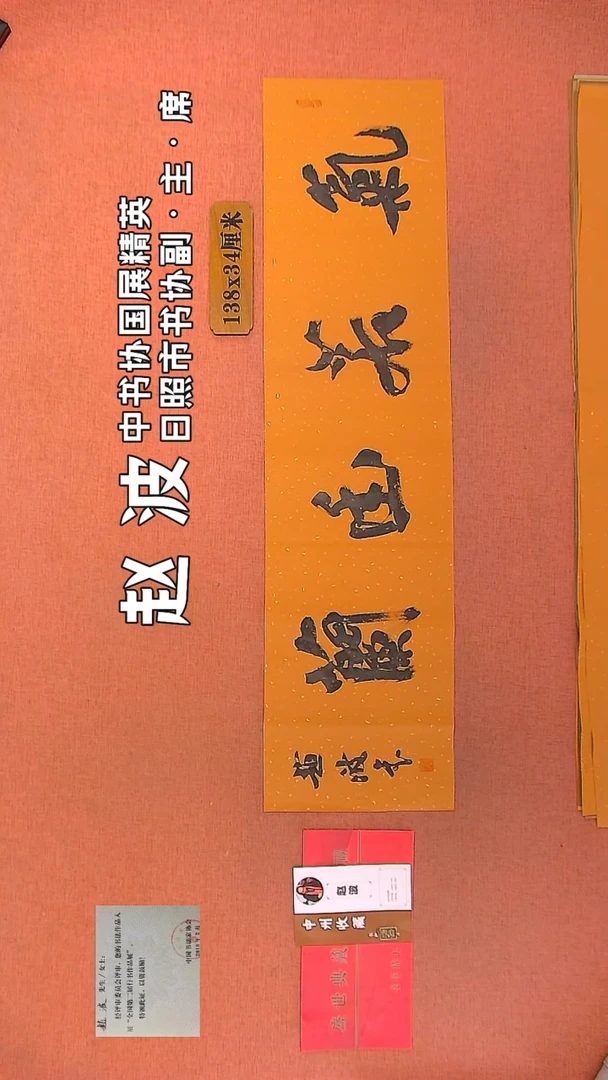 赵波
中书协国展精英
日照市书协副·主·席
138x34厘米
氣若幽蘭
赵波书
赵波 先生/女士:
经评审委员会评审,您的书法作品入
"全国第二届行书作品展"。
特颁此证,以资鼓励!
中国书法家协会
赵波
中州收藏
世典藏